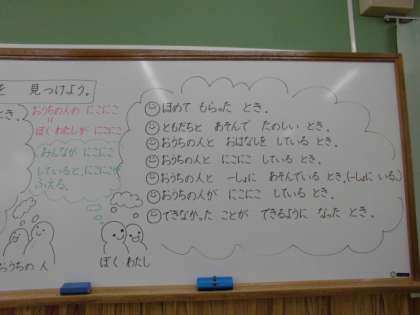 を 見つけよう。
とき。
おうちの人の にこにこ
＝
ぼく わたしが にこにこ
みんなが にこにこ
していると、にこにこが
ふえる。
おうちの人
ぼく わたし
ほめて もらった とき。
ともだちと あそんで たのしい とき。
おうちの人と おはなしを している とき。
おうちの人と にこにこ している とき。
おうちの人と 一しょに あそんでいる とき。(一しょに いる。)
おうちの人が にこにこ している とき。
できなかった ことが できるように なった とき。